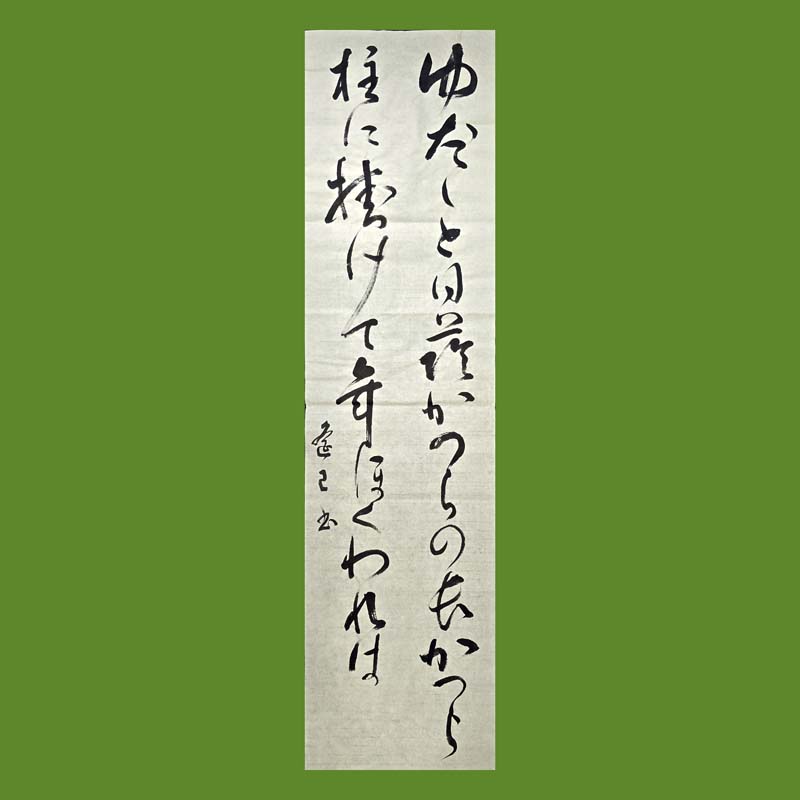 ゆたゝと日蔭かつらの長かつら
柱に掛けて年ほくわれは
書